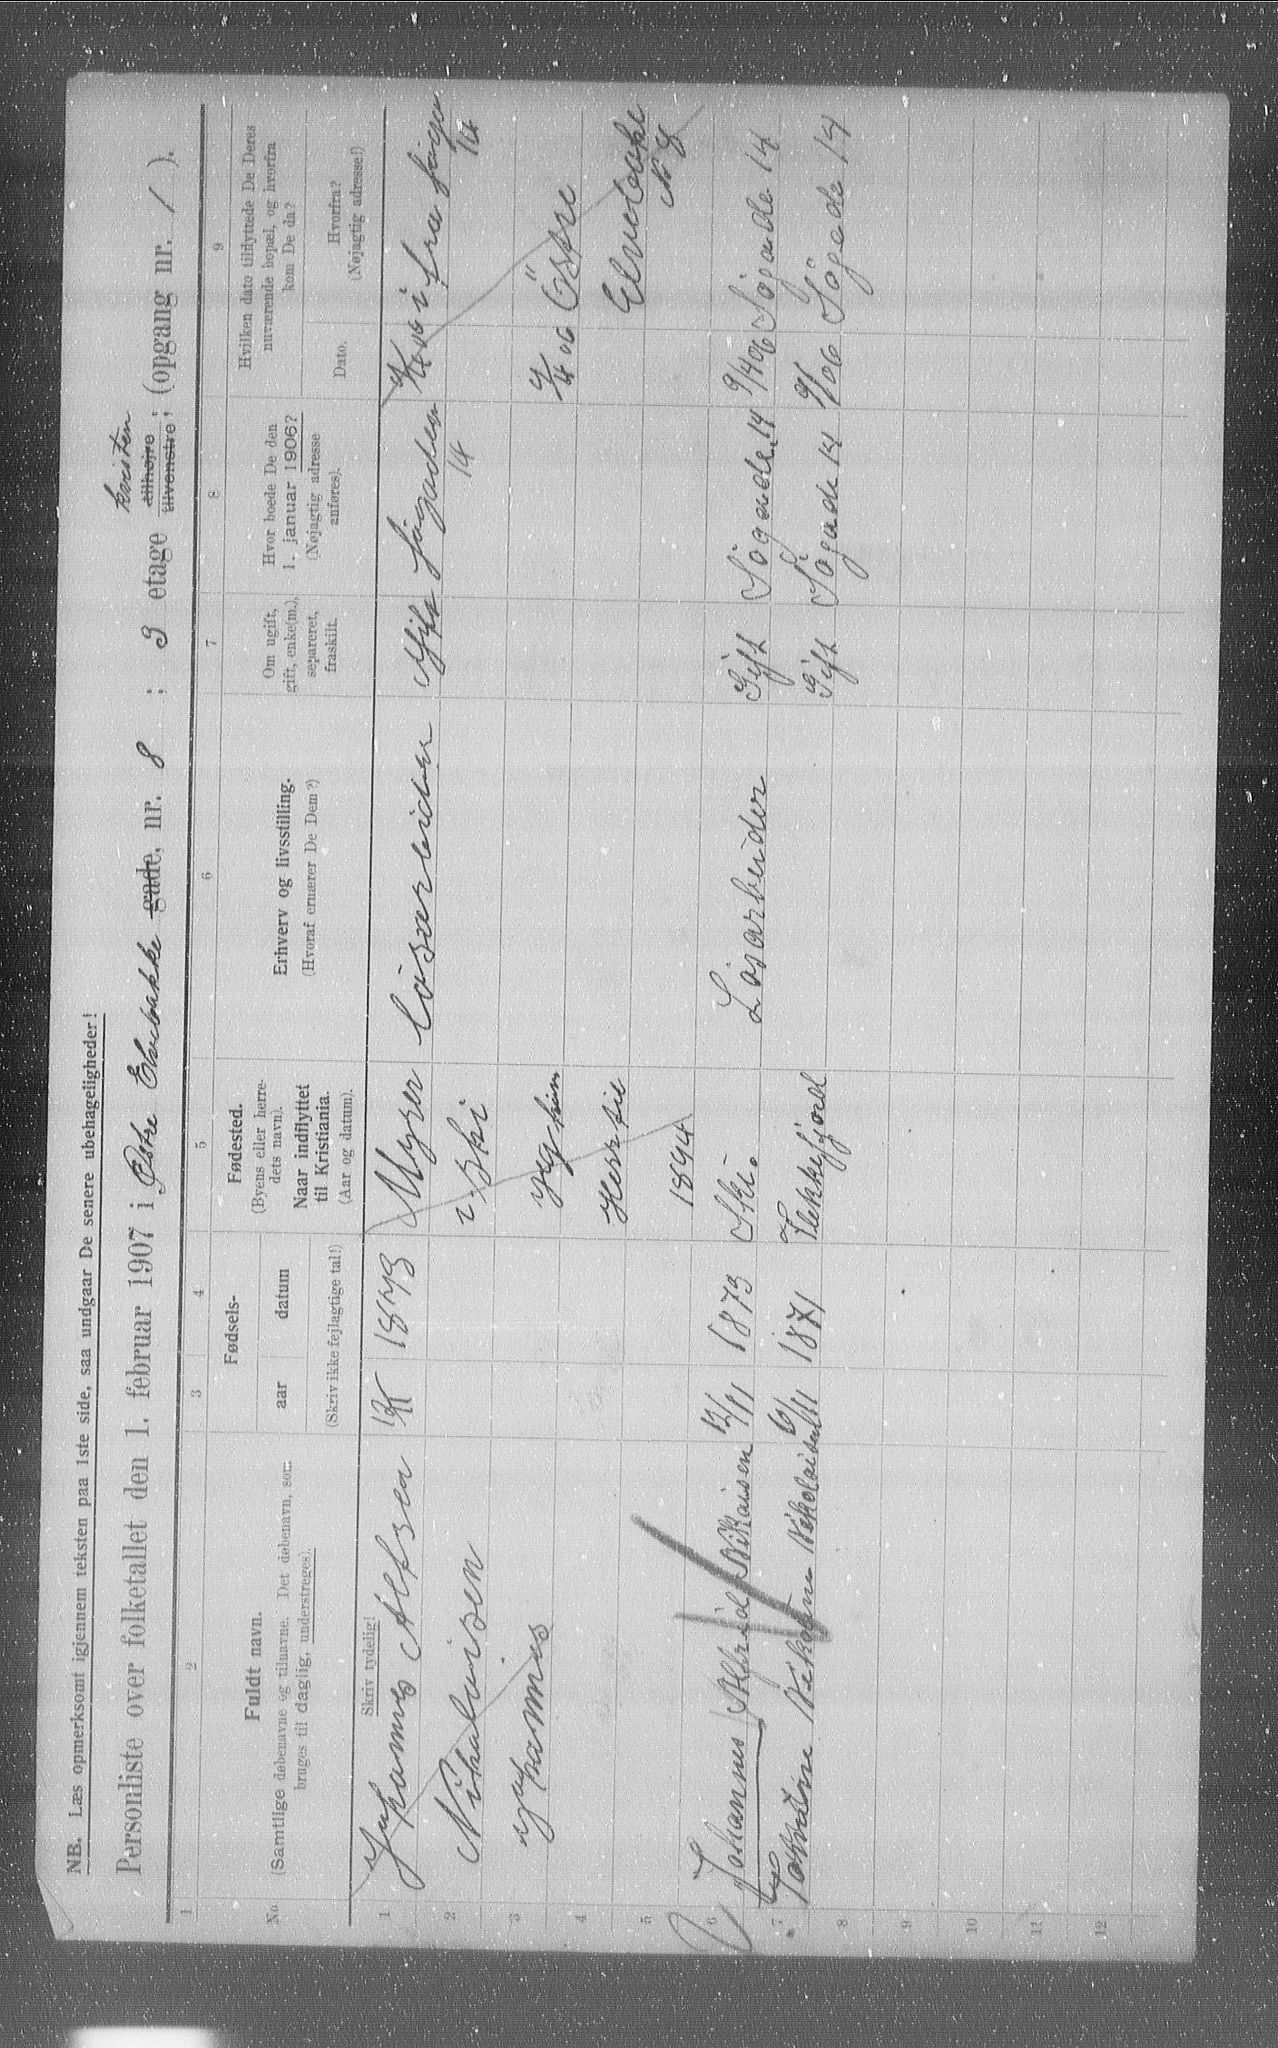 NB. Læs opmerksomt igjennem teksten paa 1ste side, saa undgaar De senere ubehageligheder!
Personliste over folketallet den 1. februar 1907 i Østre Elvebakke gade, nr. 8 ; 3 etage kvisten tilhøire tilvenstre; (opgang nr. 1 ).
1 2 3 4 5 6 7 8 9
No.
Fuldt navn.
(Samtlige døbenavne og tilnavne. Det døbenavn, som
bruges til daglig, understreges).
Fødsels-
aar datum
(Skriv ikke fejlagtige tal!)
Fødested.
(Byens eller herre-
dets navn).
Naar indflyttet
til Kristiania.
(Aar og datum).
Erhverv og livsstilling.
(Hvoraf ernærer De Dem?)
Om ugift,
gift, enke(m.),
separeret,
fraskilt.
Hvor boede De den
1. januar 1906?
(Nøjagtig adresse
anføres).
Hvilken dato tilflyttede De Deres
nuværende bopæl, og hvorfra
kom De da?
Dato.
Hvorfra?
(Nøjagtig adresse!)
Skriv tydelig!
1 1873 Myrer Løsarbeider Gift Søgaden fra
2 Nikolaisen i Ski 14 14
3 9/4 06 Østre
4 Elvebakke
5 1894 No 8
6 Johannes Alfred 12/11 1873 Ski. Løsarbeider Gift Søgade 14 9/4 06 Søgade 14
7 Nikolaisen 1871 Flekkefjord Gift Søgade 14 9/06 Søgade 14
8
9
10
11
12